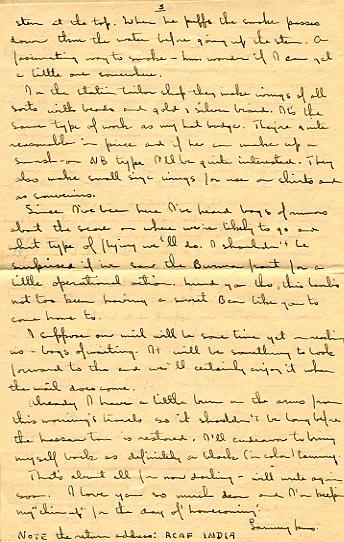 3
stem at the top. When he puffs the smoke passes
down thru the water before going up the stem. A
fascinating way to smoke - him wonder if I can get
a little one somewhere.
In the station tailor shop they make wings of all
sorts with beads and gold & silver braid. It's the
same type of work as my hat badge. They're quite
reasonable in price and if he can make up a
sweat-on NB type I'll be quite interested. They
also make small size wings for use on shirts and
as souvenirs.
Since I've been here I've heard bags of rumors
about the score on where we're likely to go and
what type of flying we'll do. I shouldn't be
surprised if we saw the Burma front for a
little operational action. Mind you tho, this lad's
not too keen having a sweet Bear like you to
come home to.
I suppose our mail will be some time yet in reaching
us - bags of waiting. It will be something to look
forward to tho and we'll certainly enjoy it when
the mail does come.
Already I have a little burn on the arms from
this morning's travels so it shouldn't be long before
the Nassau tan is restored. I'll endeavor to bring
myself back as definitely a black (in color) Sammy.
That's about all for now darling - will write again
soon. I love you so much dear and I'm keeping
my "chin up" for the day of "homecoming".
Sammy
NOTE the return address: RCAF INDIA